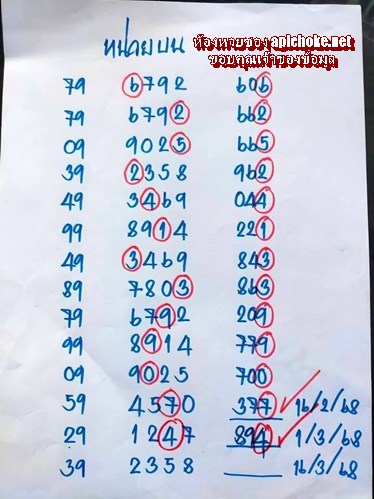 หน่วยบน
ห้องหวยซองaplchoke.net
ขอบคุณเจ้าของข้อมูล
79 6792 606
79 6792 662
09 9025 665
39 2358 962
49 3469 044
99 8914 221
49 3469 843
89 7803 863
79 6792 209
99 8914 779
09 9025 700
59 4570 377 16/2/68
29 1247 894 1/3/68
39 2358 16/3/68